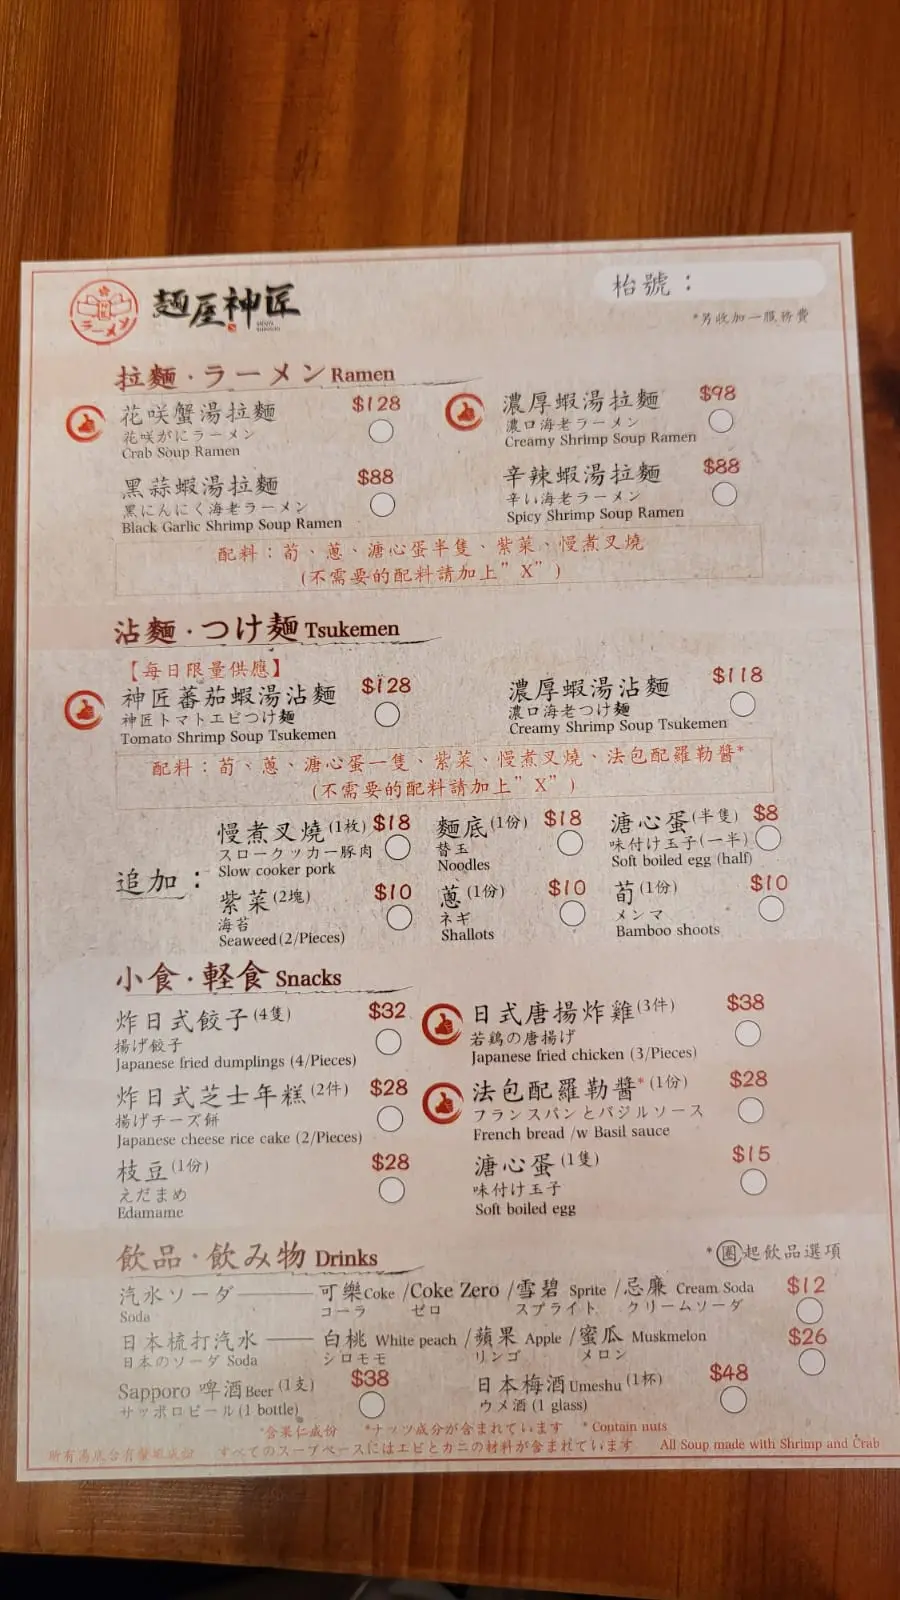 ラーメン
麺屋神匠
枱號：
*另收加一服務費
拉麵·ラーメン Ramen
花咲蟹湯拉麵 $128
花咲がにラーメン
Crab Soup Ramen
濃厚蝦湯拉麵 $98
濃口海老ラーメン
Creamy Shrimp Soup Ramen
黑蒜蝦湯拉麵 $88
黒にんにく海老ラーメン
Black Garlic Shrimp Soup Ramen
辛辣蝦湯拉麵 $88
辛い海老ラーメン
Spicy Shrimp Soup Ramen
配料：荀、蔥、溏心蛋半隻、紫菜、慢煮叉燒
(不需要的配料請加上”X”)
沾麵·つけ麺 Tsukemen
【每日限量供應】
神匠蕃茄蝦湯沾麵 $128
神匠トマトエビつけ麵
Tomato Shrimp Soup Tsukemen
濃厚蝦湯沾麵 $118
濃口海老つけ麵
Creamy Shrimp Soup Tsukemen
配料：荀、蔥、溏心蛋一隻、紫菜、慢煮叉燒、法包配羅勒醬*
(不需要的配料請加上”X”)
追加：
慢煮叉燒(1枚) $18
スロークッカー豚肉
Slow cooker pork
麵底(1份) $18
替玉
Noodles
溏心蛋(半隻) $8
味付け玉子(一半)
Soft boiled egg (half)
紫菜(2塊) $10
海苔
Seaweed(2/Pieces)
蔥(1份) $10
ネギ
Shallots
荀(1份) $10
メンマ
Bamboo shoots
小食·軽食 Snacks
炸日式餃子(4隻) $32
揚げ餃子
Japanese fried dumplings (4/Pieces)
日式唐揚炸雞(3件) $38
若鶏の唐揚げ
Japanese fried chicken (3/Pieces)
炸日式芝士年糕(2件) $28
揚げチーズ餅
Japanese cheese rice cake (2/Pieces)
法包配羅勒醬*(1份) $28
フランスパンとバジルソース
French bread /w Basil sauce
枝豆(1份) $28
えだまめ
Edamame
溏心蛋(1隻) $15
味付け玉子
Soft boiled egg
飲品·飲み物 Drinks
*圈起飲品選項
汽水ソーダ 可樂Coke /Coke Zero /雪碧 Sprite /忌廉 Cream Soda $12
Soda コーラ ゼロ スプライト クリームソーダ
日本梳打汽水 白桃 White peach /蘋果 Apple /蜜瓜 Muskmelon $26
日本のソーダ Soda シロモモ リンゴ メロン
Sapporo 啤酒Beer (1支) $38
サッポロビール(1 bottle)
日本梅酒Umeshu (1杯) $48
ウメ酒 (1 glass)
*含果仁成份 *ナッツ成分が含まれています * Contain nuts
所有湯底含有蟹蝦成份 すべてのスープベースにはエビとカニの材料が含まれています All Soup made with Shrimp and Crab